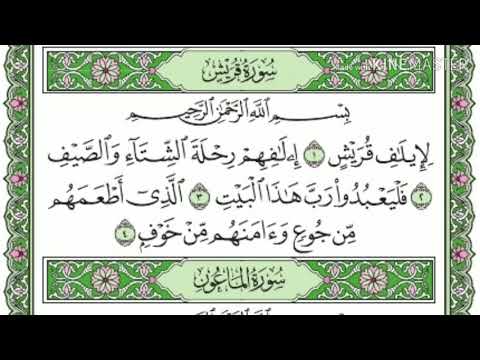 Made with KINEMASTER
سُورَةُ قُرَيْشٍ
بِسْمِ ٱللَّهِ ٱلرَّحْمَٰنِ ٱلرَّحِيمِ
لِإِيلَٰفِ قُرَيْشٍ ١ إِۦلَٰفِهِمْ رِحْلَةَ ٱلشِّتَآءِ وَٱلصَّيْفِ
٢ فَلْيَعْبُدُوا۟ رَبَّ هَٰذَا ٱلْبَيْتِ ٣ ٱلَّذِىٓ أَطْعَمَهُم
مِّن جُوعٍ وَءَامَنَهُم مِّنْ خَوْفٍۭ ٤
سُورَةُ المَاعُونِ